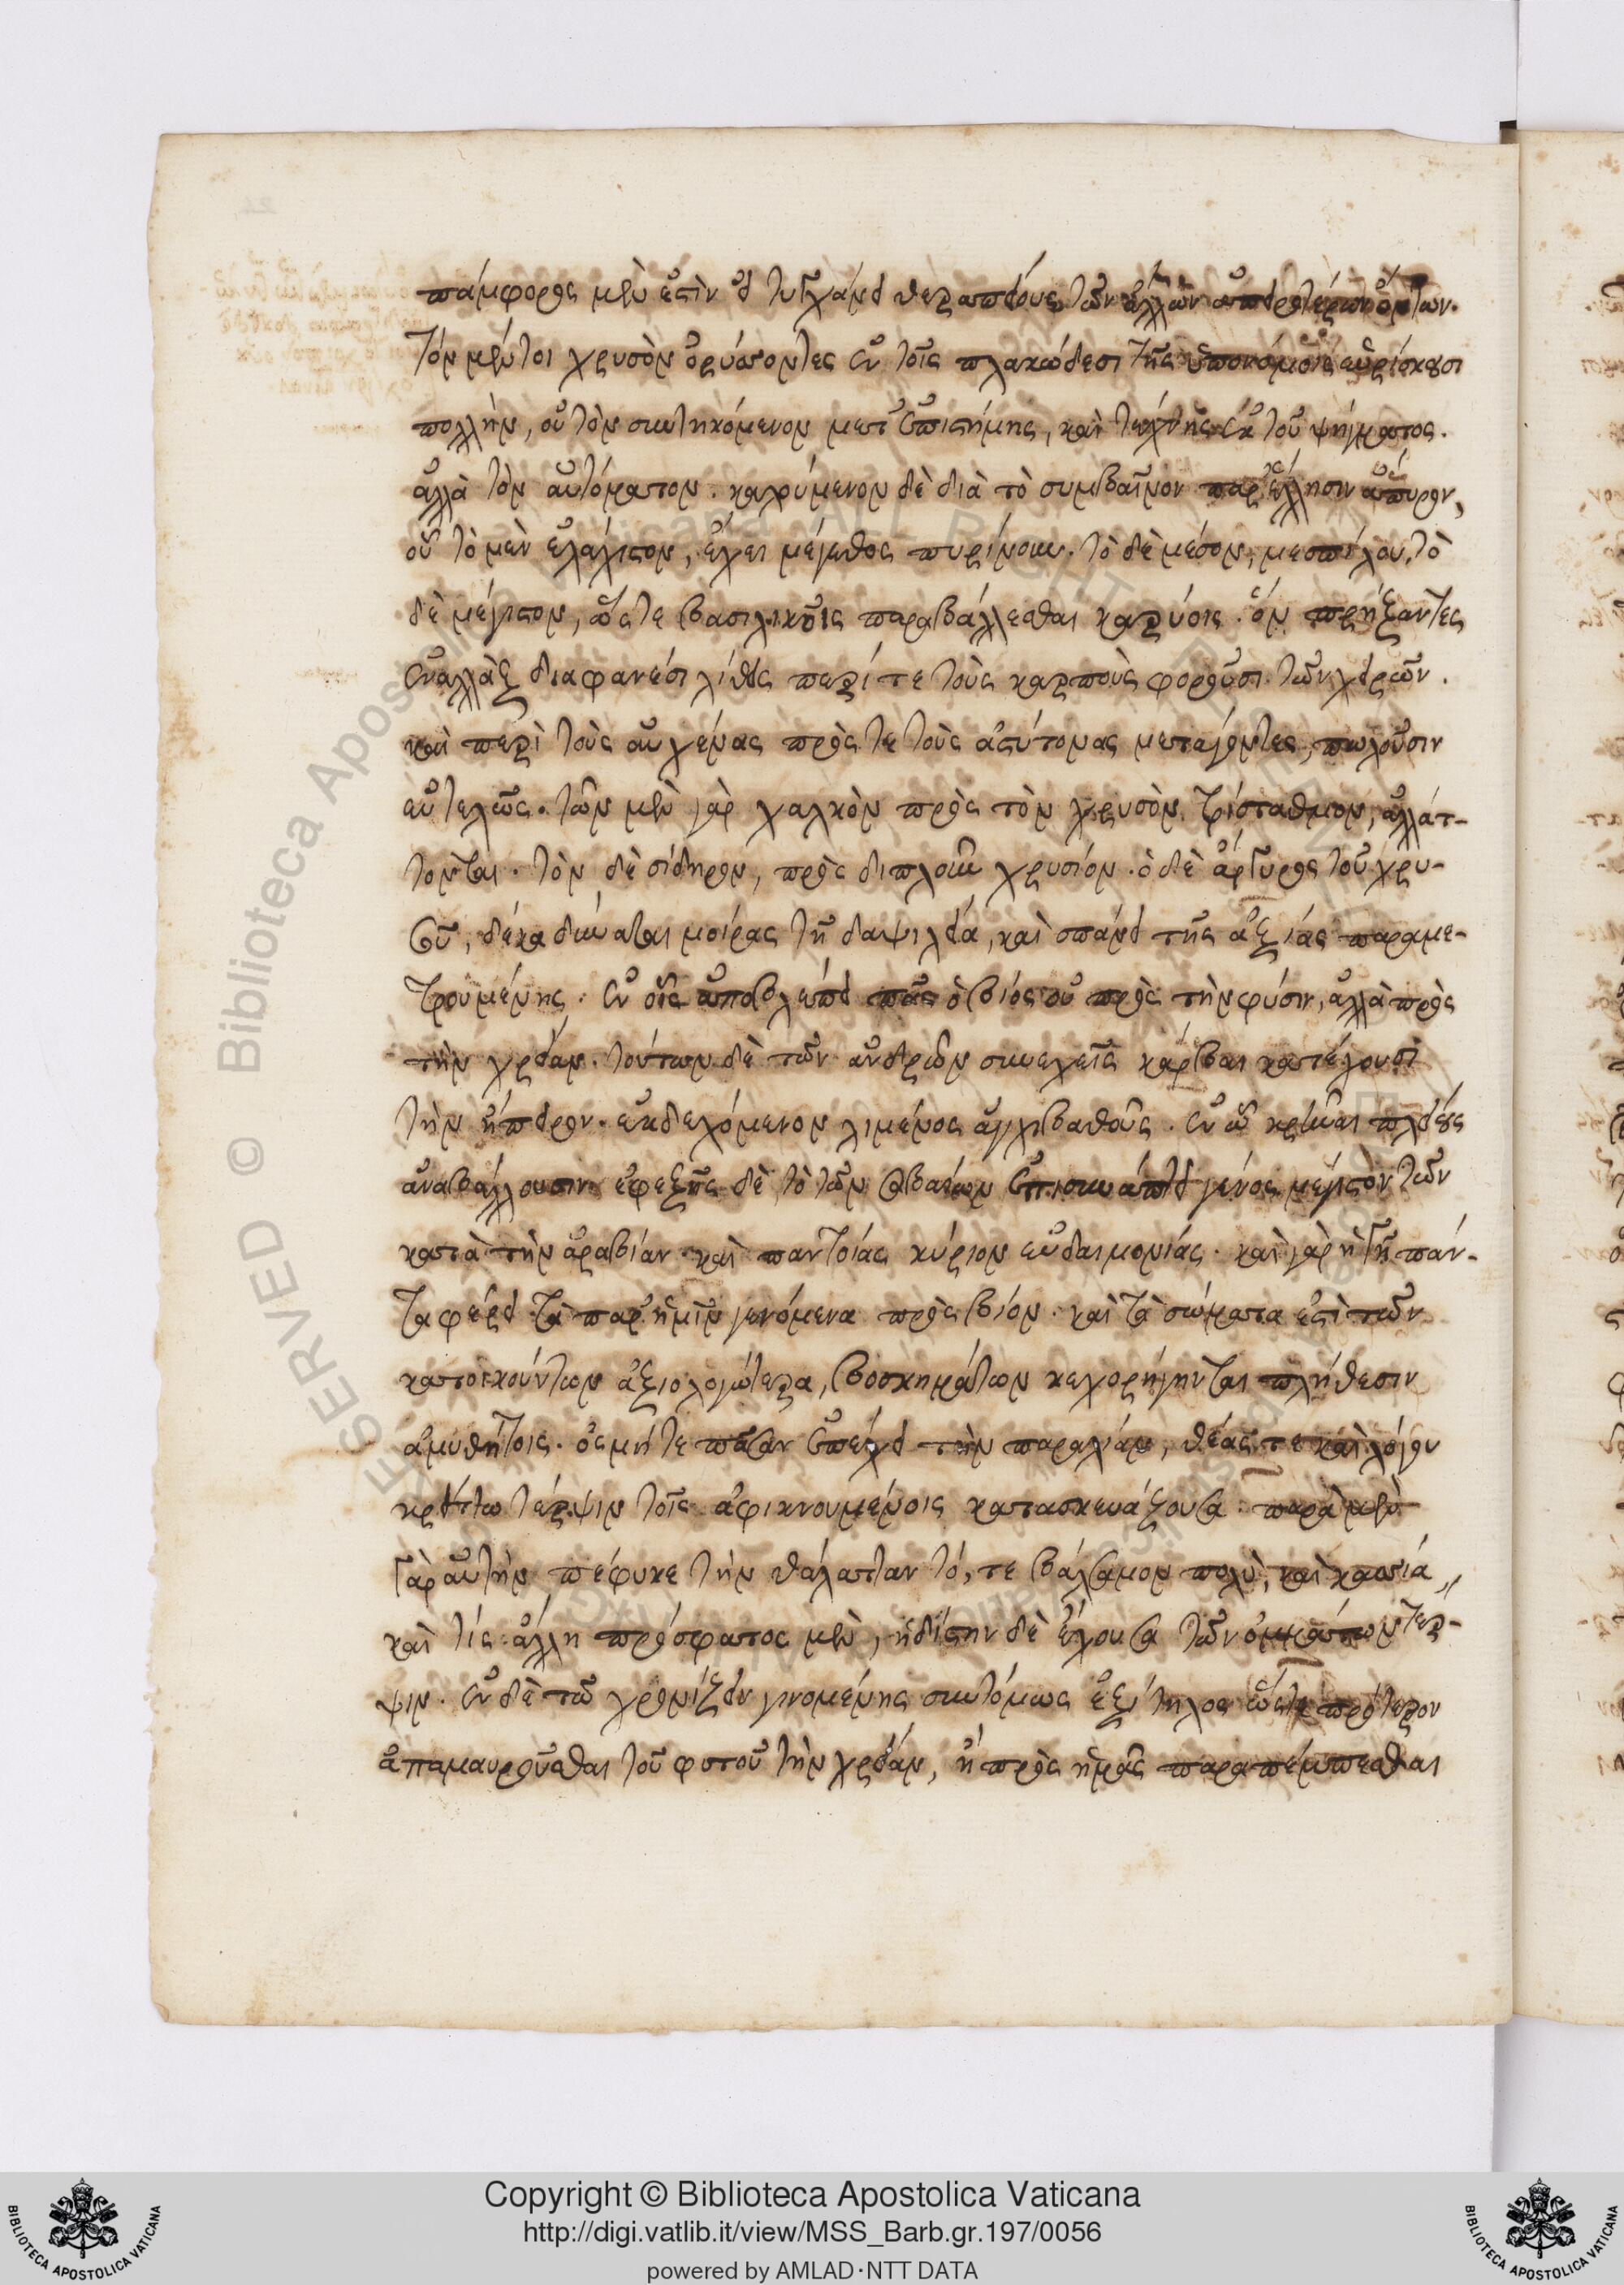 πάμφορος μὲν ἐστὶν εἰ τυγχάνει θεραπείους τῶν ἄλλων ἀπειροτέρων ὄντων.
τὸν μέντοι χρυσὸν ὀρύττοντες ἐν τοῖς πλακώδεσι τῆς ὑπονόμοις εὑρίσκουσι
πολλὴν, οὐ τὸν συντηκόμενον μετ' ἐπιστήμης, καὶ τέχνης ἐκ τοῦ ψήγματος.
ἀλλὰ τὸν αὐτόματον. καλούμενον δὲ διὰ τὸ συμβαῖνον παρ' ἕλλησιν ἄπυρον,
οὗ τὸ μὲν ἐλάχιστον, ἔχει μέγεθος πυρίνου. τὸ δὲ μέσον, μεσπίλου, τὸ
δὲ μέγιστον, ὥστε βασιλικοῖς παραβάλλεσθαι καρύοις. ὃν τρήξαντες
ἐναλλὰξ διαφανέσι λίθοις περί τε τοὺς καρποὺς φοροῦσι τῶν χειρῶν.
καὶ περὶ τοὺς αὐχένας πρός τε τοὺς ἀστύτονας μεταγοντες, πωλοῦσιν
εὐτελῶς. τῶν μὲν γὰρ χαλκὸν πρὸς τὸν χρυσὸν τρίσταθμον, ἀλλάτ-
τονται. τὸν δὲ σίδηρον, πρὸς διπλοῦν χρυσίον. ὁ δὲ ἄργυρος τοῦ χρυ-
σοῦ, δέκα δύναται μοίρας τῇ δαψιλείᾳ, καὶ σπάνει τῆς ἀξίας παραμε-
τρουμένης. ἐν οἷς ἀποβλέπει πᾶς ὁ βίος οὐ πρὸς τὴν φύσιν, ἀλλὰ πρὸς
τὴν χρείαν. τούτων δὲ τῶν ἀνδρῶν συνεχεῖς κάρβαι κατέχουσι
τὴν ἤπειρον. ἐκδεχόμενον λιμένος ἀγχιβαθοῦς. ἐν ᾧ κρῆναι πλείους
ἀναβάλλουσιν. ἐφεξῆς δὲ τὸ τῶν σαβαίων ἐπισυνάπτει γένος μέγιστον τῶν
κατὰ τὴν ἀραβίαν. καὶ παντοίας κύριον εὐδαιμονίας. καὶ γὰρ ἡ γῆ πάν-
τα φέρει τὰ παρ' ἡμῖν γενόμενα πρὸς βίον. καὶ τὰ σώματα ἐστὶ τῶν
κατοικούντων ἀξιολογώτερα, βοσκημάτων κεχορήγηνται πλήθεσιν
ἀμυθήτοις. ὀσμή τε πᾶσαν ἐπέχει τὴν παραλίαν, θέας τε καὶ λόγου
κρείττω τέρψιν τοῖς ἀφικνουμένοις κατασκευάζουσα. παρὰ μὲν
γὰρ αὐτὴν πέφυκε τὴν θάλατταν τό, τε βάλσαμον πολὺ, καὶ κασία,
καὶ τίς ἄλλη πρόσφατος μὲν, ἡδίστην δὲ ἔχουσα τῶν ὀμμάτων τέρ-
ψιν. ἐν δὲ τῷ χρονίζειν γινομένης συντόμως ἐξίτηλος ὥστε πρότερον
ἀπαμαυροῦσθαι τοῦ φυτοῦ τὴν χρείαν, ἢ πρὸς ἡμᾶς παραπέμπεσθαι
Copyright © Biblioteca Apostolica Vaticana
http://digi.vatlib.it/view/MSS_Barb.gr.197/0056
powered by AMLAD·NTT DATA